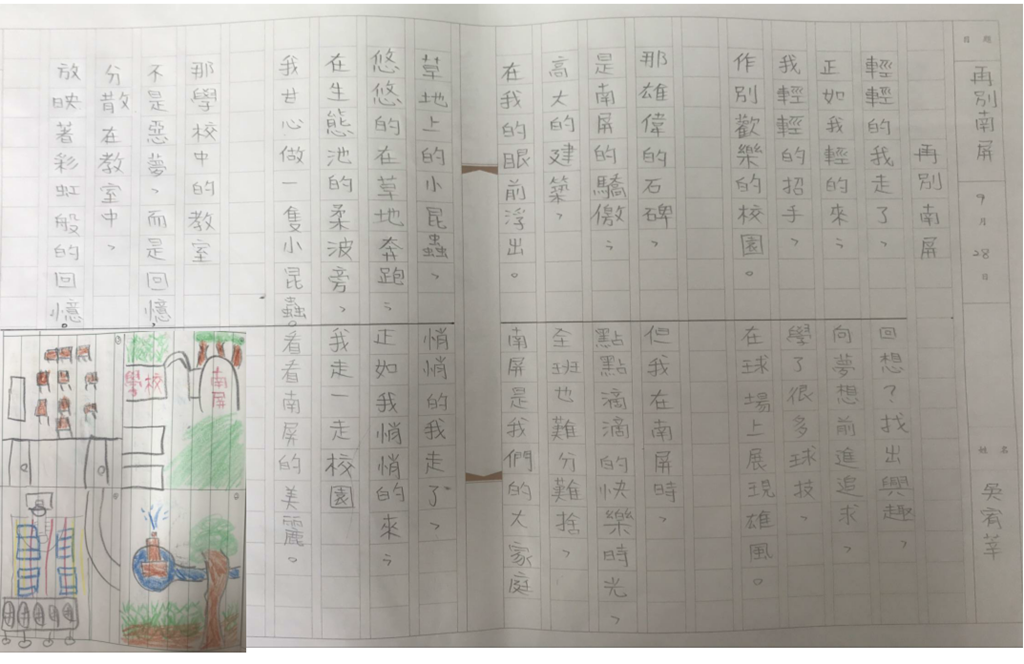 題目 再別南屏 9月28日 姓名 吳宥莘
再別南屏
輕輕的我走了，
正如我輕的來；
我輕輕的招手，
作別歡樂的校園。
那雄偉的石碑，
是南屏的驕傲；
高大的建築，
在我的眼前浮出。
草地上的小昆蟲，
悠悠的在草地奔跑；
在生態池的柔波旁，
我甘心做一隻小昆蟲。
那學校中的教室
不是惡夢，而是回憶，
分散在教室中，
放映著彩虹般的回憶。
回想？找出興趣，
向夢想前進追求，
學了很多球技，
在球場上展現雄風。
但我在南屏時，
點點滴滴的快樂時光，
全班也難分難捨，
南屏是我們的大家庭
悄悄的我走了，
正如我悄悄的來；
我走一走校園
看看南屏的美麗。
南屏
學校